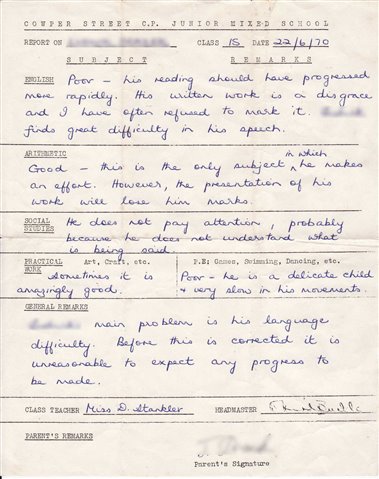 COWPER STREET C.P. JUNIOR MIXED SCHOOL
REPORT ON CLASS 1S DATE 22/6/70
SUBJECT REMARKS
ENGLISH Poor - his reading should have progressed
more rapidly. His written work is a disgrace
and I have often refused to mark it.
finds great difficulty in his speech.
ARITHMETIC
Good - this is the only subject in which he makes
an effort. However, the presentation of his
work will lose him marks.
SOCIAL STUDIES He does not pay attention, probably
because he does not understand what
is being said.
PRACTICAL WORK Art, Craft, etc.
Sometimes it is
amazingly good.
P.E; Games, Swimming, Dancing, etc.
Poor - he is a delicate child
+ very slow in his movements.
GENERAL REMARKS
main problem is his language
difficulty. Before this is corrected it is
unreasonable to expect any progress to
be made.
CLASS TEACHER Miss D. Stankler HEADMASTER
PARENT'S REMARKS
Parent's Signature